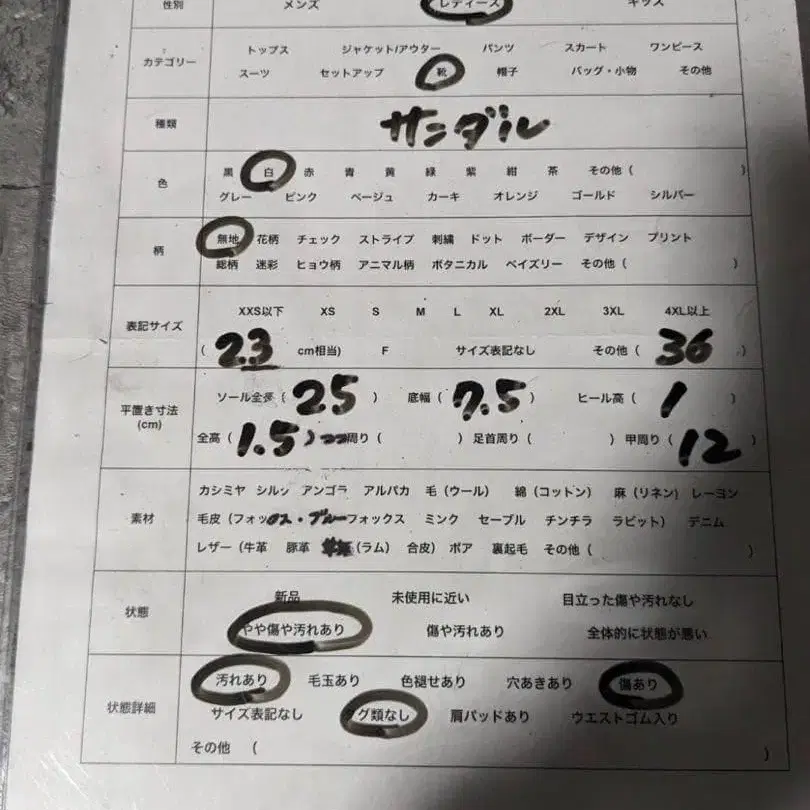 性別 メンズ レディース キッズ
カテゴリー トップス ジャケット/アウター パンツ スカート ワンピース
スーツ セットアップ 靴 帽子 バッグ・小物 その他
種類 サンダル
色 黒 白 赤 青 黄 緑 紫 紺 茶 その他( )
グレー ピンク ベージュ カーキ オレンジ ゴールド シルバー
柄 無地 花柄 チェック ストライプ 刺繍 ドット ボーダー デザイン プリント
総柄 迷彩 ヒョウ柄 アニマル柄 ボタニカル ペイズリー その他( )
表記サイズ XXS以下 XS S M L XL 2XL 3XL 4XL以上
( 23 cm相当) F サイズ表記なし その他( 36 )
平置き寸法(cm) ソール全長( 25 ) 底幅( 7.5 ) ヒール高( 1 )
全高( 1.5 ) 周り( ) 足首周り( ) 甲周り( 12 )
素材 カシミヤ シルク アンゴラ アルパカ 毛(ウール) 綿(コットン) 麻(リネン) レーヨン
毛皮(フォックス・ブルーフォックス ミンク セーブル チンチラ ラビット) デニム
レザー(牛革 豚革 (ラム) 合皮) ボア 裏起毛 その他( )
状態 新品 未使用に近い 目立った傷や汚れなし
やや傷や汚れあり 傷や汚れあり 全体的に状態が悪い
状態詳細 汚れあり 毛玉あり 色褪せあり 穴あきあり 傷あり
サイズ表記なし タグ類なし 肩パッドあり ウエストゴム入り
その他 ( )